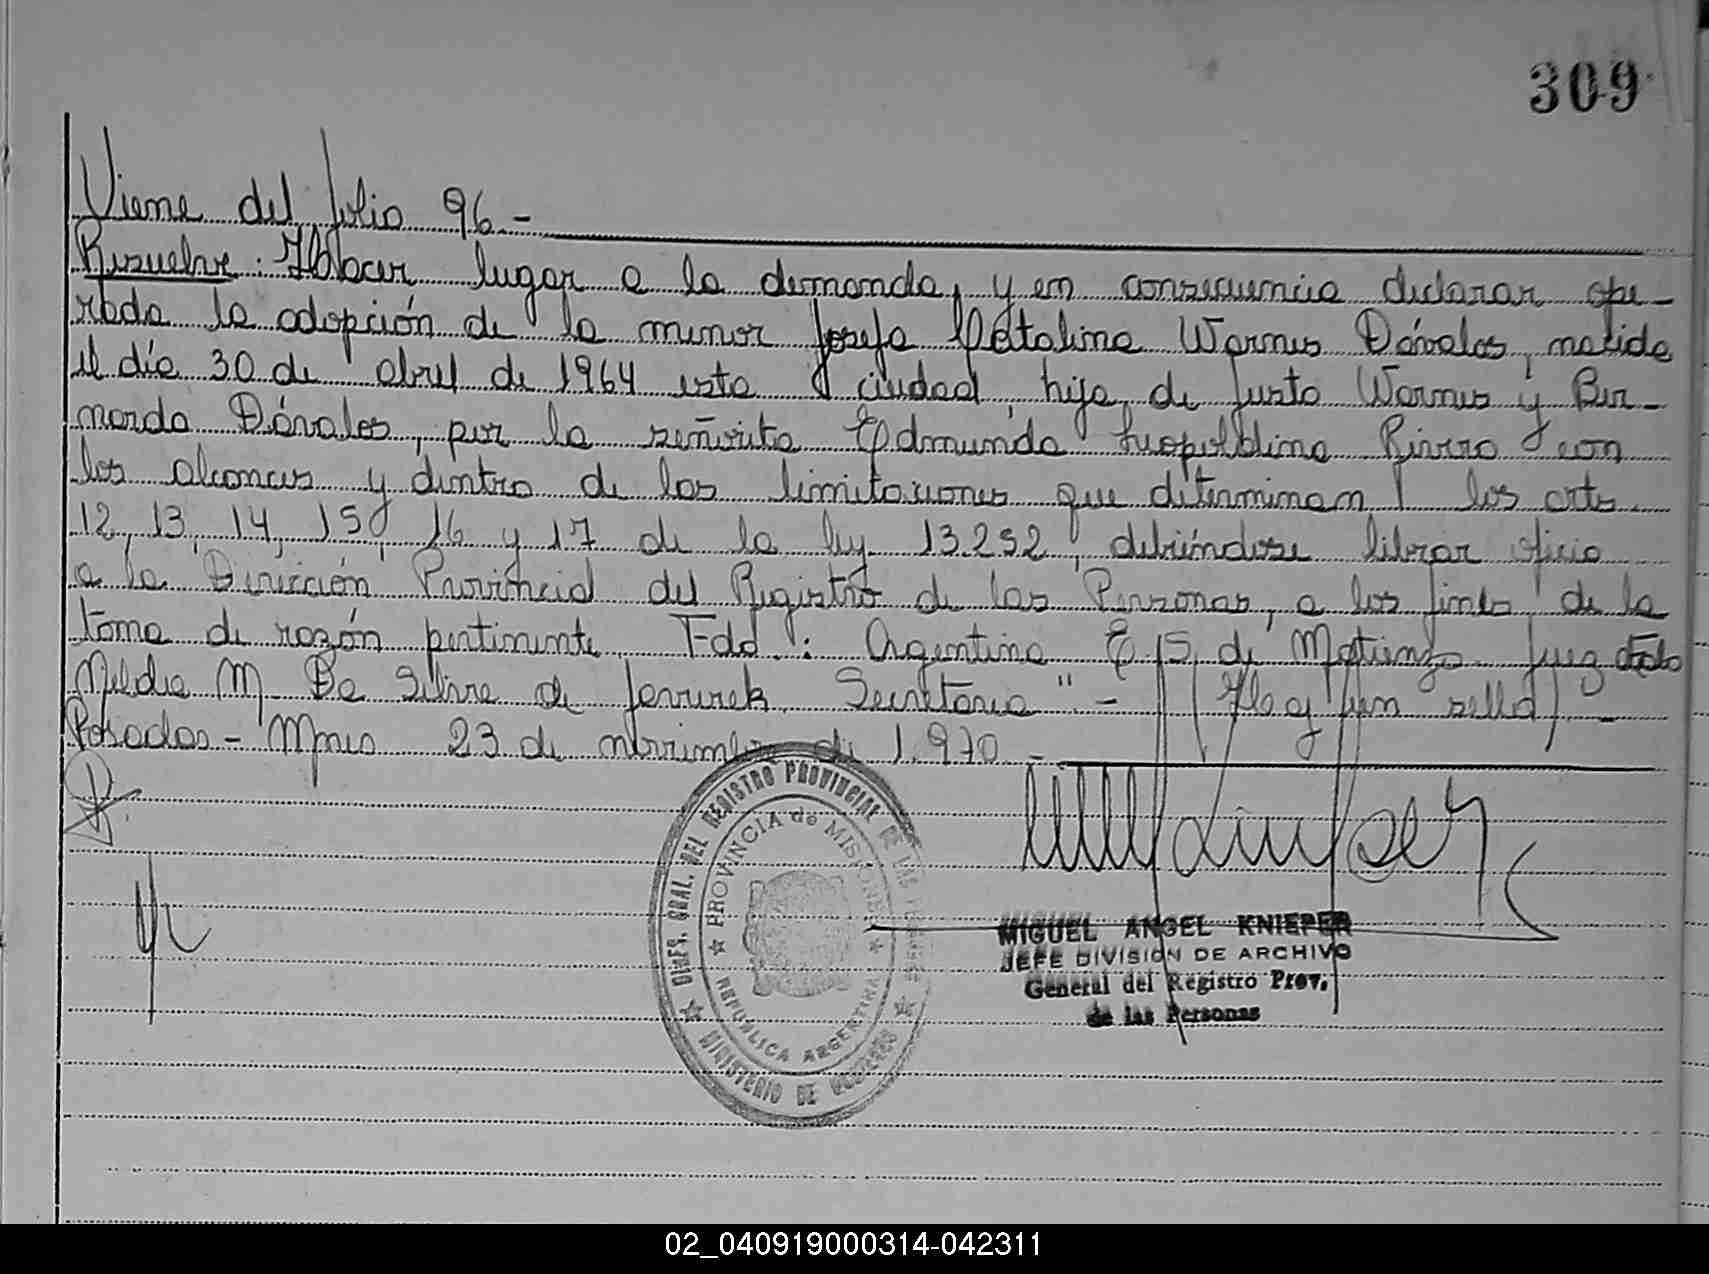 309
Viene del folio 96.-
Resuelve: Hacer lugar a la demanda, y en consecuencia declarar ope-
rada la adopción de la menor Josefa Catalina Warnes Dávalos, nacida
el día 30 de abril de 1964 esta ciudad, hija de Justo Warnes y Ber-
narda Dávalos, por la señorita Edmunda Leopoldina Rivero con
los alcances y dentro de las limitaciones que determinan los arts
12, 13, 14, 15, 16 y 17 de la ley 13.252, debiéndose librar oficio
a la Dirección Provincial del Registro de las Personas, a los fines de la
toma de razón pertinente. Fdo: Argentina E. S. de Juez
M. de Secretaria".- (Hay un sello).-
Posadas - Mnes 23 de noviembre de 1.970.-
DIREC. GRAL. DEL REGISTRO PROVINCIAL DE LAS PERSONAS
PROVINCIA de MISIONES
REPUBLICA ARGENTINA
MINISTERIO DE GOBIERNO
MIGUEL ANGEL KNIEPER
JEFE DIVISION DE ARCHIVO
General del Registro Prov.
de las Personas
02_040919000314-042311